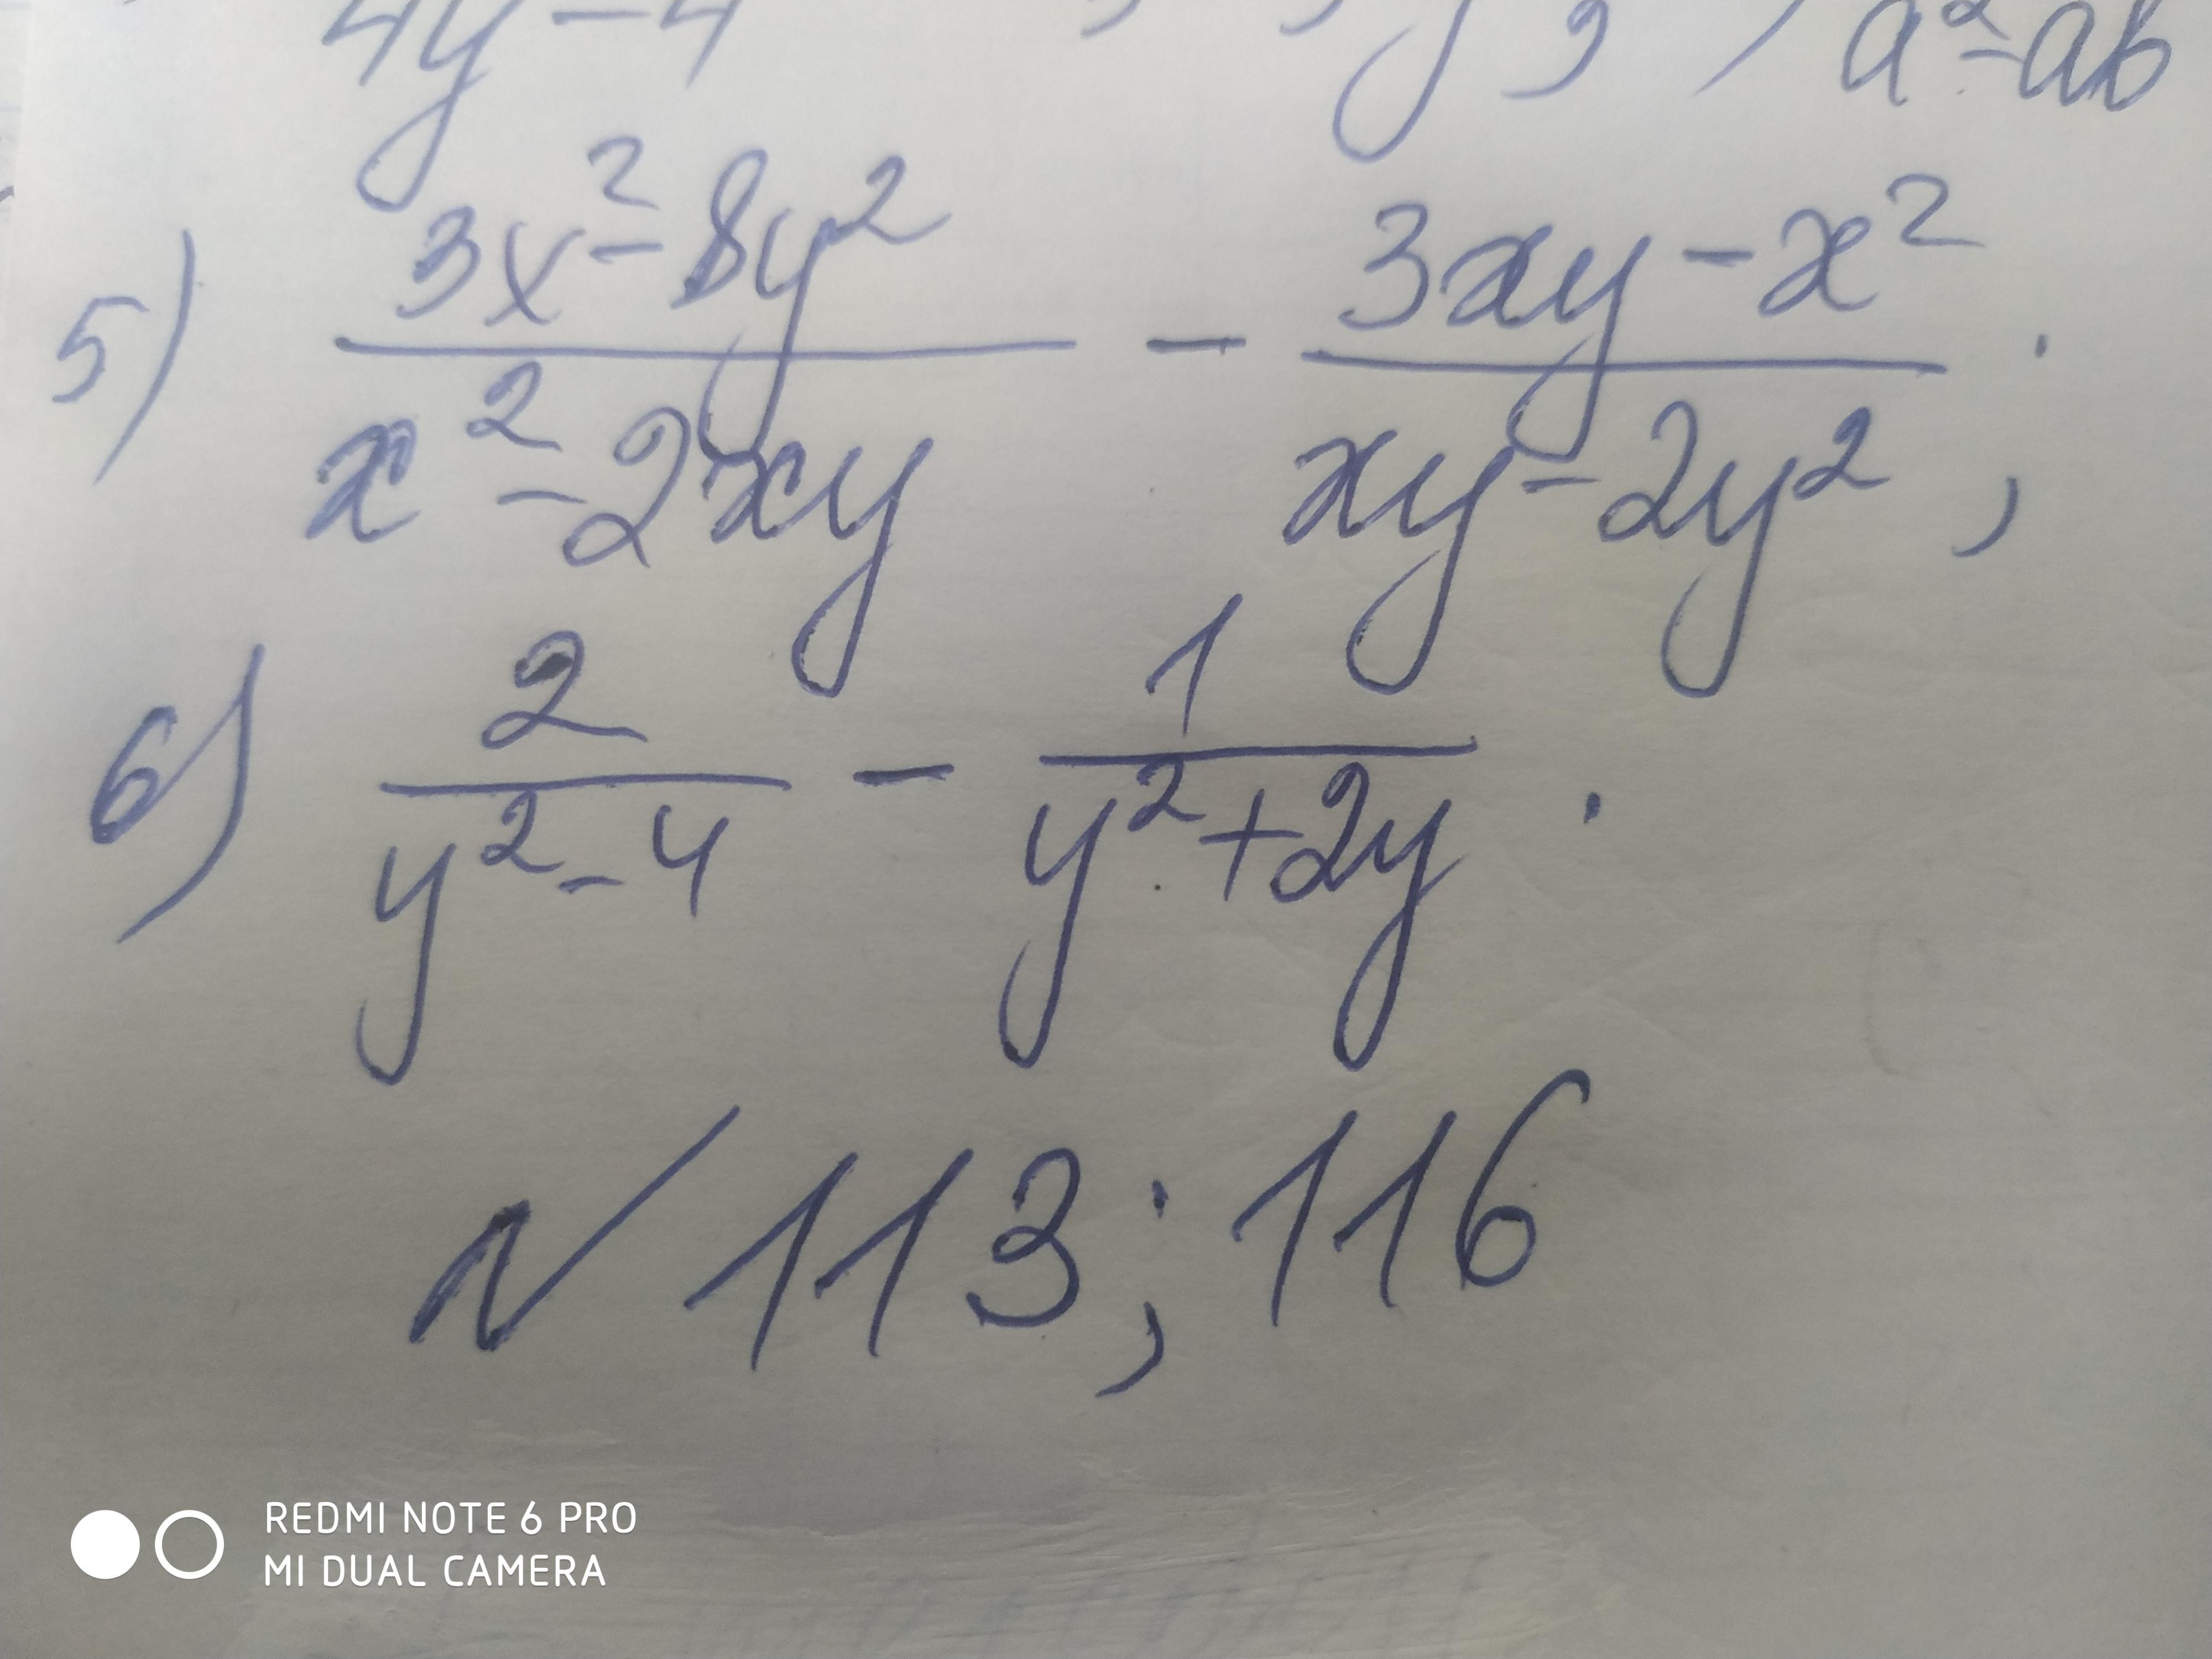 4y - 4 a² - ab
5) (3x² - 8y²)/(x² - 2xy) - (3xy - x²)/(xy - 2y²) ;
6) 2/(y² - 4) - 1/(y² + 2y) .
N 113; 116
REDMI NOTE 6 PRO
MI DUAL CAMERA